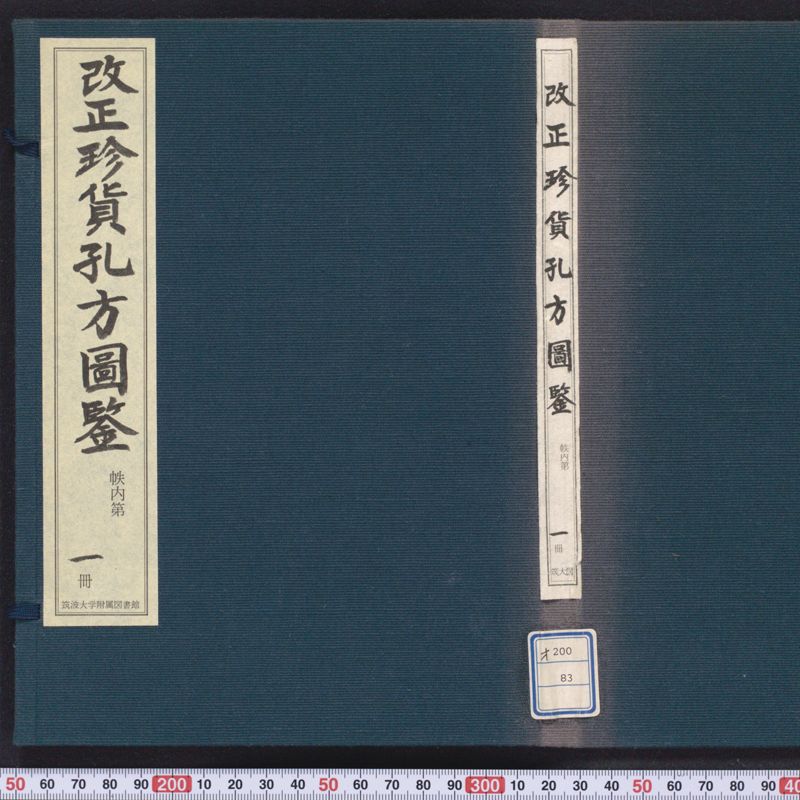 改正珍貨孔方圖鑒
帙内第
一
冊
筑波大学附属図書館
改正珍貨孔方圖鑒
帙内第
一
冊
筑大図
オ200
83
50 60 70 80 90 200 10 20 30 40 50 60 70 80 90 300 10 20 30 40 50 60 70 80 90